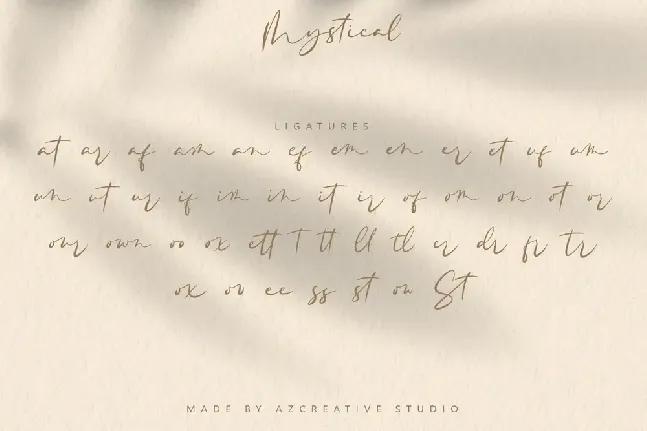 Mystical
LIGATURES
at ar af am an ef em en er et uf um
un ut ur if im in it ir of om on ot or
our own oo ox ett T tt ll tl er dr fr tr
ox ov ee ss st on St
MADE BY AZCREATIVE STUDIO